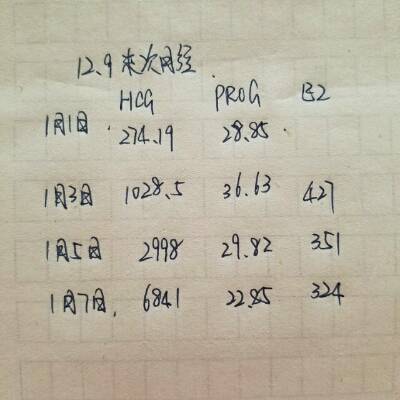 12.9 末次月经
HCG PROG E2
1月1日 274.19 28.85
1月3日 1028.5 36.63 427
1月5日 2998 29.82 351
1月7日. 6841 22.85 324